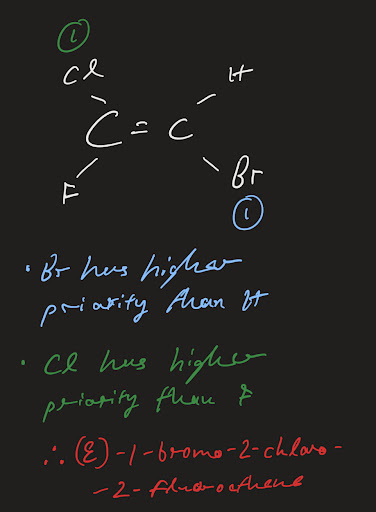 1
Cl H
C = C
F Br
1
• Br has higher
priority than H
• Cl has higher
priority than F
∴ (E)-1-bromo-2-chloro-
-2-fluoroethene